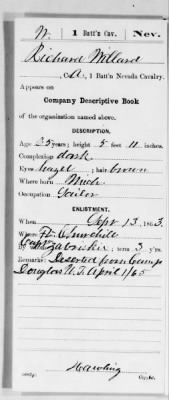 W. 1 Batt'n Cav. Nev.
Richard Willard
, Co. A, 1 Batt'n Nevada Cavalry.
Appears on
Company Descriptive Book
of the organization named above.
DESCRIPTION.
Age 25 years; height 5 feet 11 inches.
Complexion dark
Eyes hazel; hair brown
Where born Mich
Occupation Tailor
ENLISTMENT.
When Sept 13, 1863.
Where Ft Churchill
By Capt Zabriskie; term 3 y'rs.
Remarks: Deserted from Camp
Douglas U.T. April 1/65
Copyist.